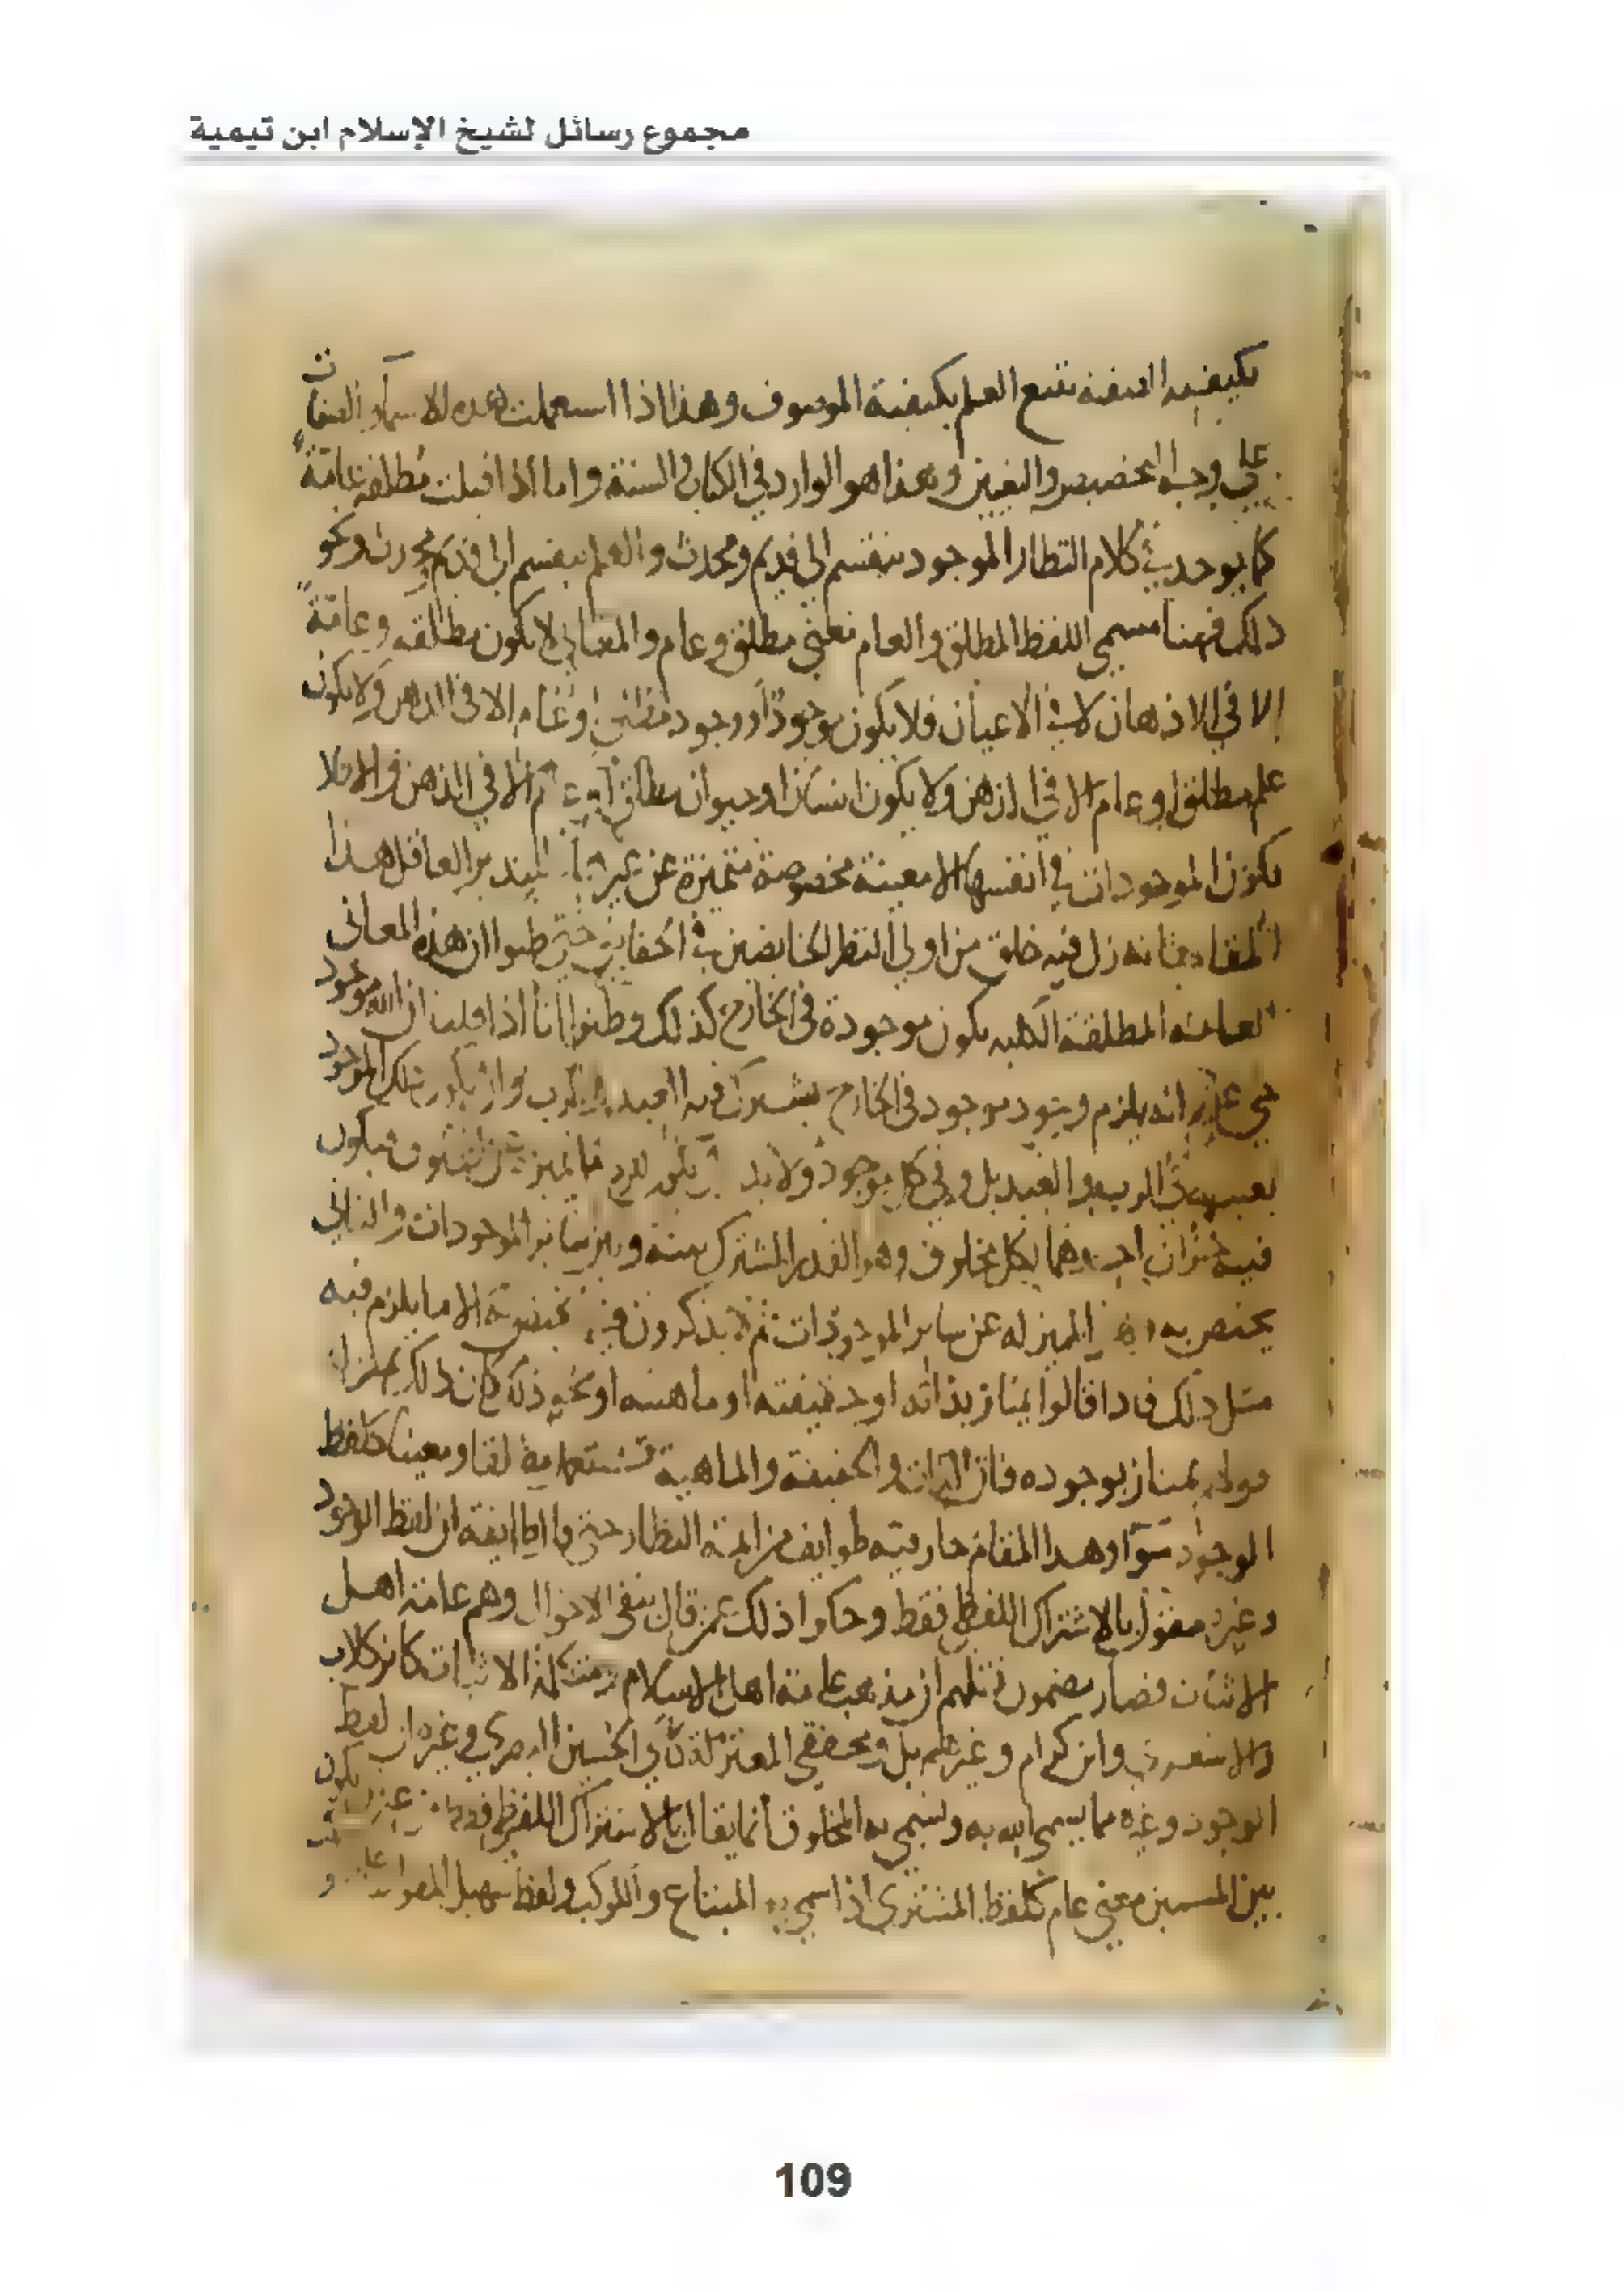 مجموع رسائل لشيخ الإسلام ابن تيمية
بكيفية الصفة تتبع العلم بكيفية الموصوف وهذا اذا استعملت هذه الاسماء والصفات
على وجه التخصيص والتعيين وهذا هو الوارد في الكتاب والسنة واما اذا قيلت مطلقة عامة
كما يوجد في كلام النظار الموجود ينقسم الى قديم ومحدث والعلم ينقسم الى قديم ومحدث ونحو
ذلك فهنا مسمى اللفظ المطلق والعام معنى مطلق وعام والمعاني لا يكون مطلقة وعامة
الا في الاذهان لا في الاعيان فلا يكون موجود او وجود مطلق او عام الا في الذهن ولا يكون
علم مطلق او عام الا في الذهن ولا يكون انسان او حيوان مطلق او عام الا في الذهن والا فلا
يكون الموجودات في انفسها الا معينة مخصوصة متميزة عن غيرها فليتدبر العاقل هذا
المقام فانه زل فيه خلق من اولي النظر الخايضين في الحقايق حتى ظنوا ان هذه المعاني
العامة المطلقة الكلية يكون موجودة في الخارج كذلك وظنوا انا اذا قلنا ان الله موجود
حي عليم انه يلزم وجود موجود في الخارج يشترك فيه العبد والرب وان يكون ذلك الموجود
بعينه في الرب والعبد بل وفي كل موجود ولا بد ان يكون للرب ما يميزه عن المخلوق فيكون
فيه جزان احدهما لكل مخلوق وهو القدر المشترك بينه وبين ساير الموجودات والثاني
يختص به وهو المميز له عن ساير الموجودات ثم لا يذكرون فيما يختص به الا ما يلزم فيه
مثل ذلك فاذا قالوا يمتاز بذاته او حقيقته او ماهيته او نحو ذلك كان ذلك بمنزلة
قولهم يمتاز بوجوده فان الذات والحقيقة والماهية تستعمل مطلقا ومعينا كلفظ
الوجود سوا وهذا المقام حار فيه طوايف من ايمة النظار حتى قال طايفة ان لفظ الوجود
وغيره مقول بالاشتراك اللفظي فقط وحكوا ذلك عمن قال بنفي الاحوال وهم عامة اهل
الاثبات فصار مضمون نقلهم ان مذهب عامة اهل الاسلام ومتكلمة الاثبات كابن كلاب
والاشعري وابن كرام وغيرهم بل ومحققي المعتزلة كابي الحسين البصري وغيره ان لفظ
الوجود وغيره مما يسمى الله به ويسمى به المخلوق انما يقال بالاشتراك اللفظي فقط من غير ان يكون
بين المسميين معنى عام كلفظ المشتري اذا سمي به المبتاع والكوكب ولفظ سهيل المقول على
109